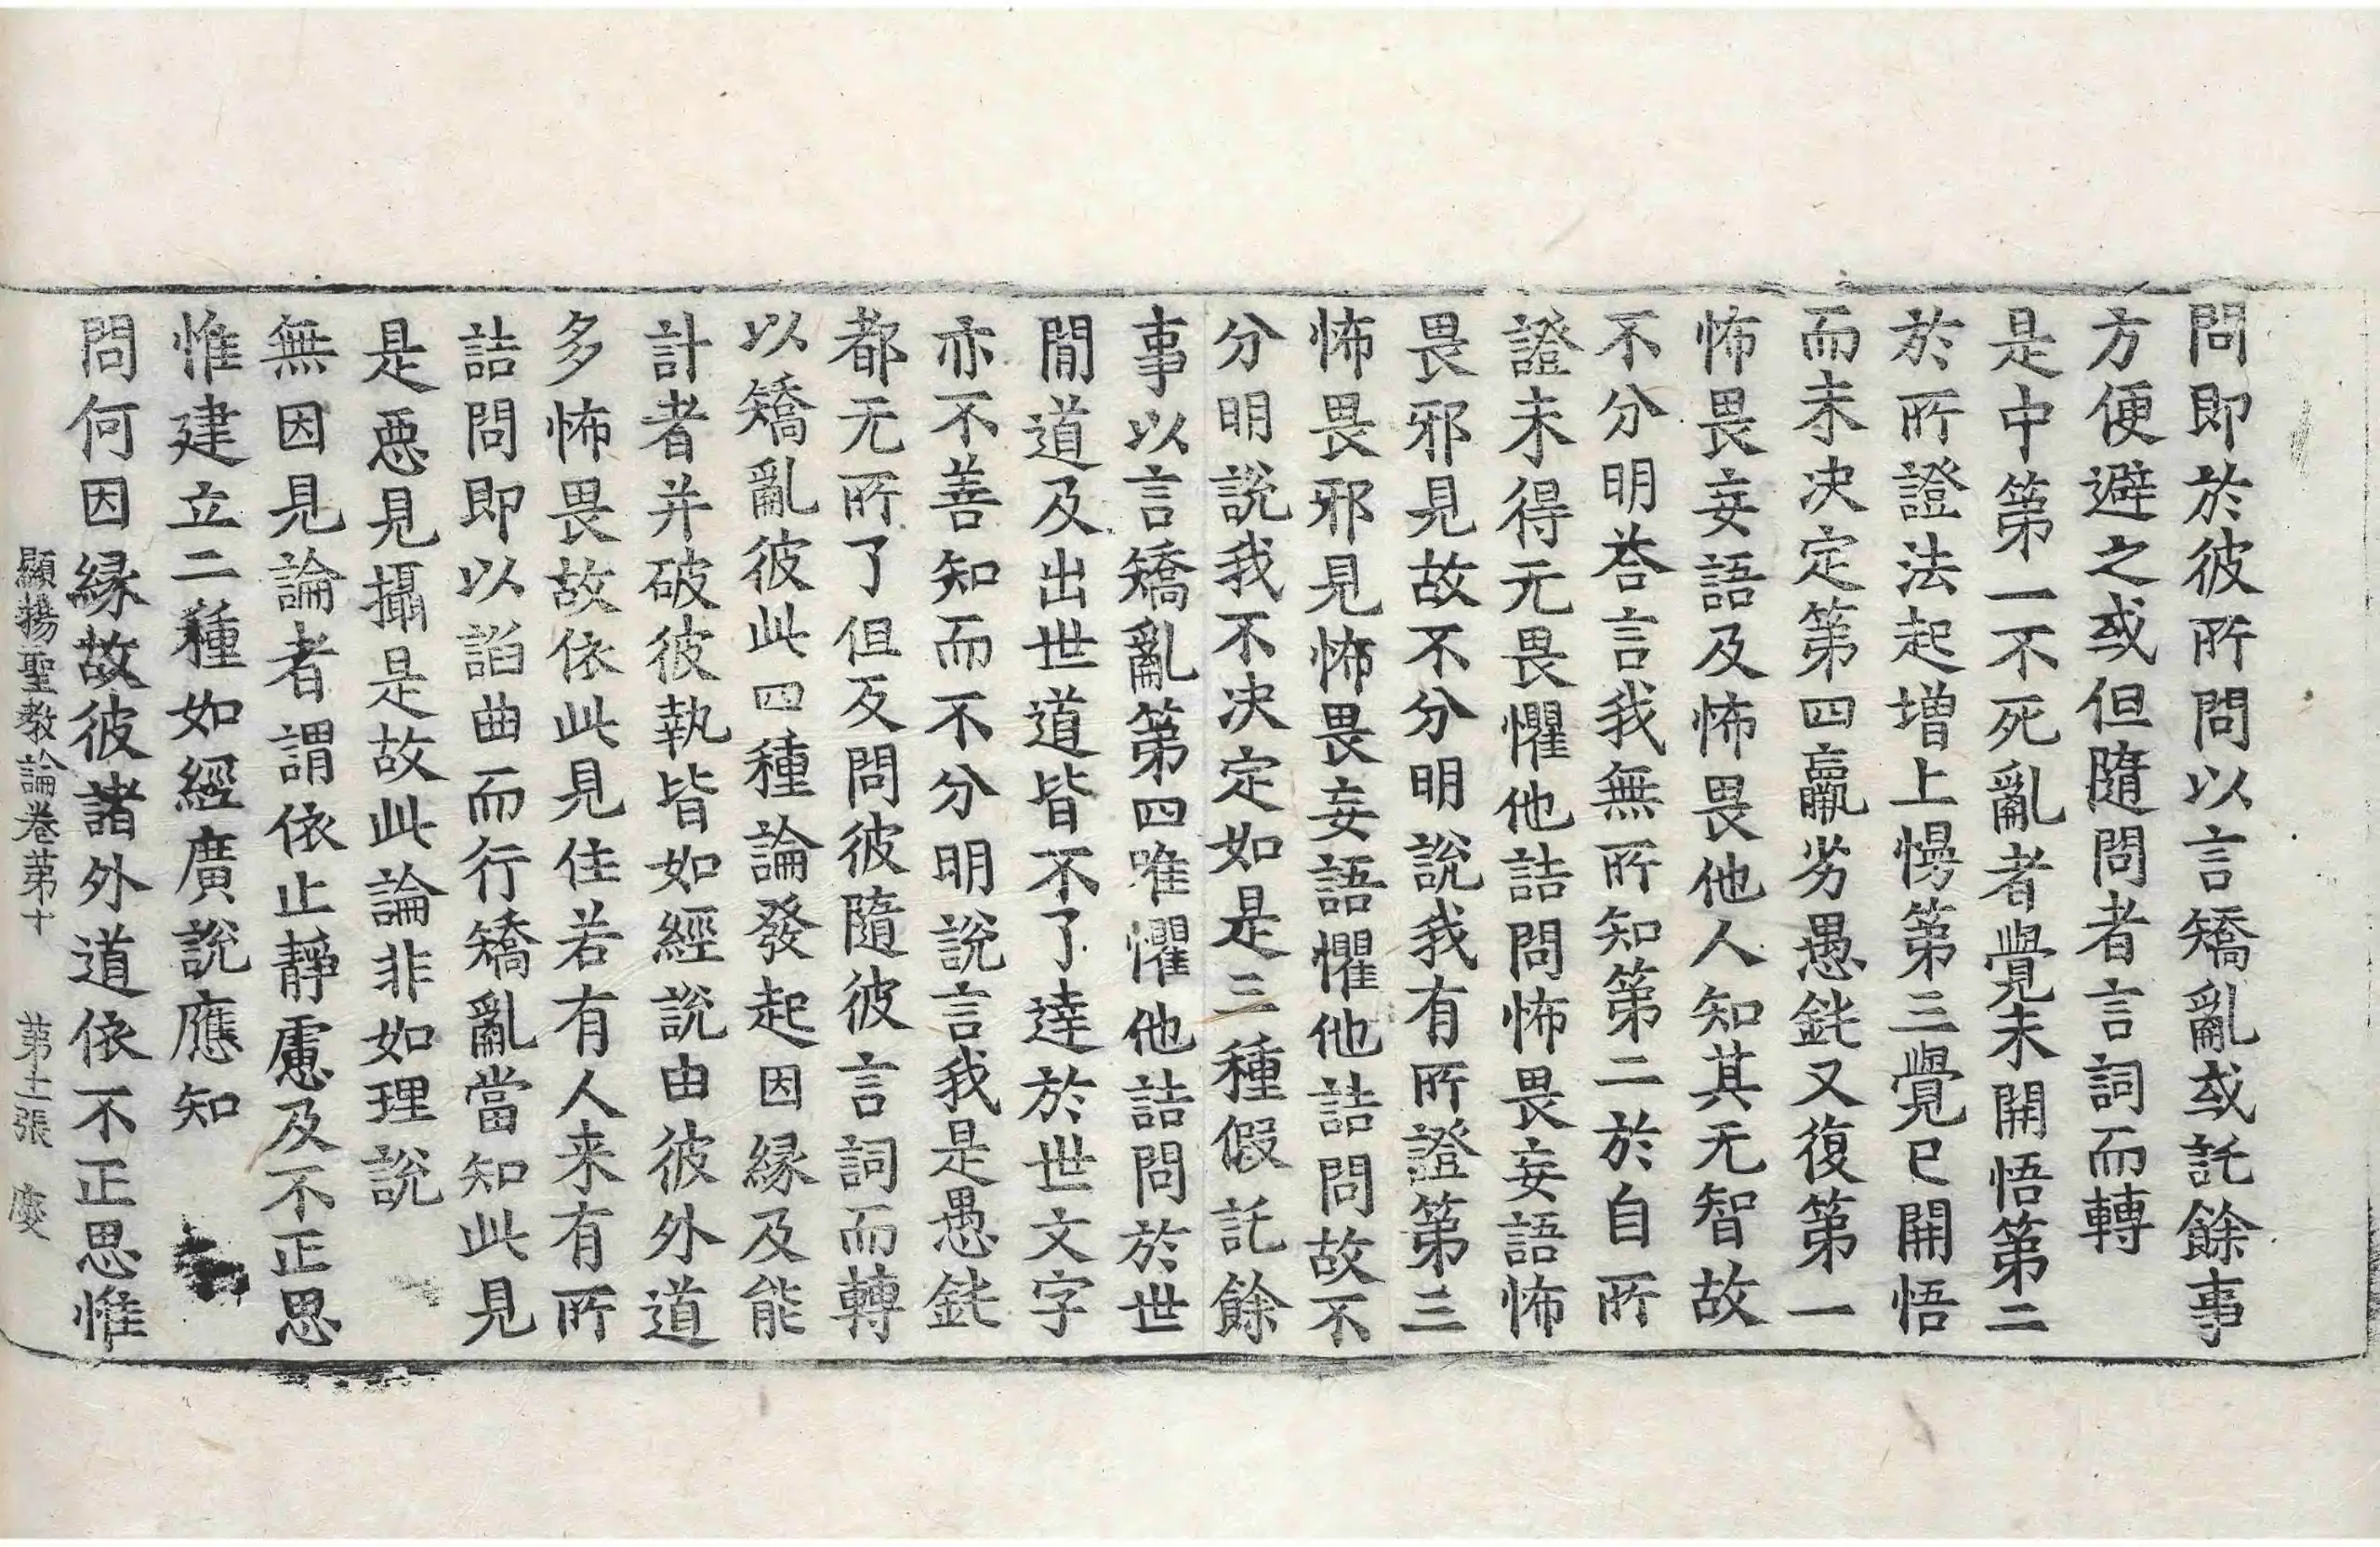 問即於彼所問以言矯亂或託餘事
方便避之或但隨問者言詞而轉
是中第一不死亂者覺未開悟第二
於所證法起增上慢第三覺已開悟
而未决定第四羸劣愚鈍又復第一
怖畏妄語及怖畏他人知其无智故
不分明荅言我無所知第二於自所
證未得无畏懼他詰問怖畏妄語怖
畏邪見故不分明說我有所證第三
怖畏邪見怖畏妄語懼他詰問故不
分明說我不决定如是三種假託餘
事以言矯亂第四唯懼他詰問於世
間道及出世道皆不了達於世文字
亦不善知而不分明說言我是愚鈍
都无所了但反問彼隨彼言詞而轉
以矯亂彼此四種論發起因縁及能
計者并破彼執皆如經說由彼外道
多怖畏故依此見住若有人来有所
詰問即以諂曲而行矯亂當知此見
是惡見攝是故此論非如理說
無因見論者謂依止靜慮及不正思
惟建立二種如經廣說應知
問何因縁故彼諸外道依不正思惟
顯揚聖教論卷第十 第十一張 慶